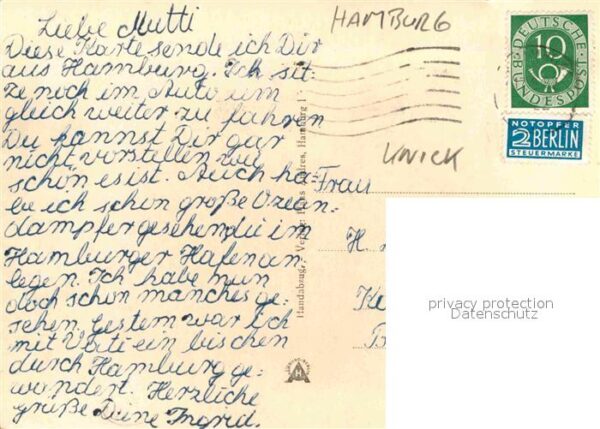 Liebe Mutti
Diese Karte sende ich Dir
aus Hamburg. Ich sit-
ze noch im Auto um
gleich weiter zu fahren
Du kannst Dir gar
nicht vorstellen wie
schön es ist. Auch ha-
be ich schon große Ozean-
dampfer gesehen die im
Hamburger Hafen an-
legen. Ich habe nun
doch schon manches ge-
sehen. Gestern war ich
mit Vati ein bischen
durch Hamburg ge-
wandert. Herzliche
grüße Deine Ingrid.
HAMBURG
KNICK
DEUTSCHE
BUNDESPOST
10
NOTOPFER
2 BERLIN
STEUERMARKE
Handabzug, Verlag Hans Hamburg 1
Frau
H.
privacy protection
Datenschutz